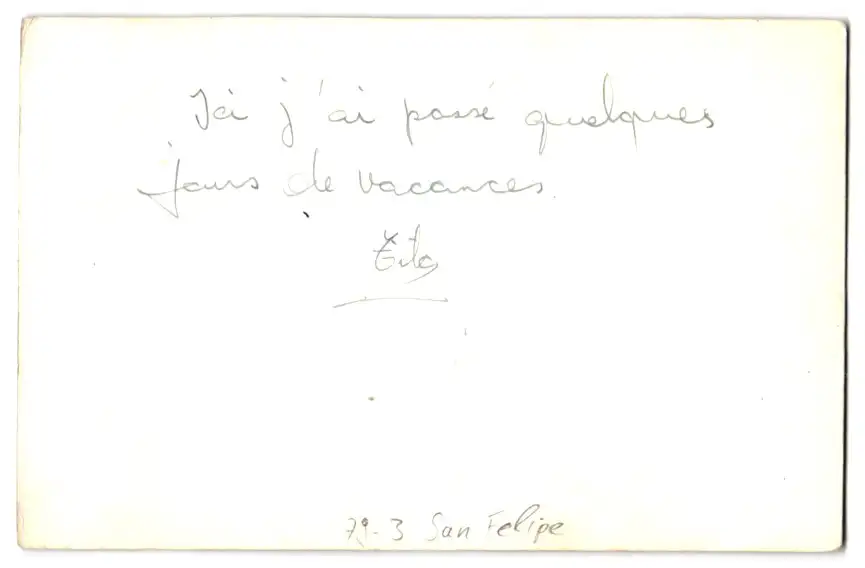 Ici j'ai passé quelques
jours de vacances.
Tita
79-3 San Felipe